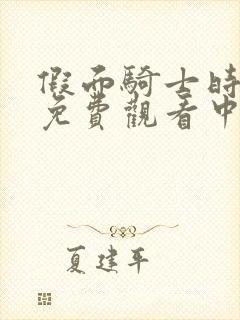 假面騎士時
免費觀看中
夏建平